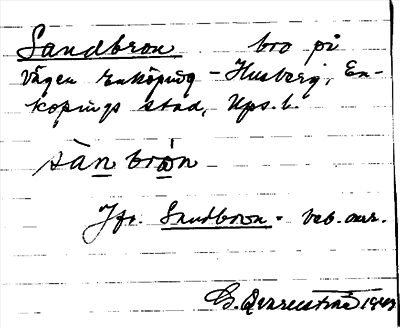 Sandbron bro på
vägen Enköping - Husberg, En-
köpings stad, Ups. l.
sàn bròn
Jfr. Sandbron - veb. anr.
1943